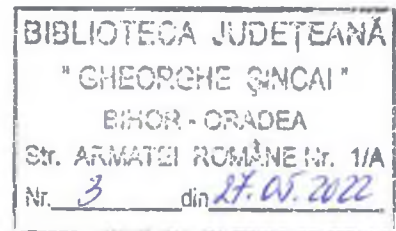 BIBLIOTECA JUDEȚEANĂ
" GHEORGHE ȘINCAI "
BIHOR - ORADEA
Str. ARMATEI ROMÂNE Nr. 1/A
Nr. 3 din 27.05.2022